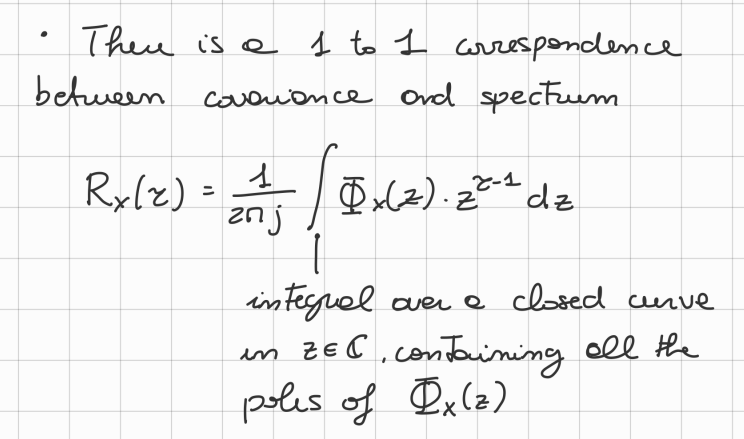 • There is a 1 to 1 correspondence
between covariance and spectrum
Rₓ(τ) = 1/(2πj) ∫ Φₓ(z) · z^(τ-1) dz
integral over a closed curve
in z ∈ ℂ, containing all the
poles of Φₓ(z)